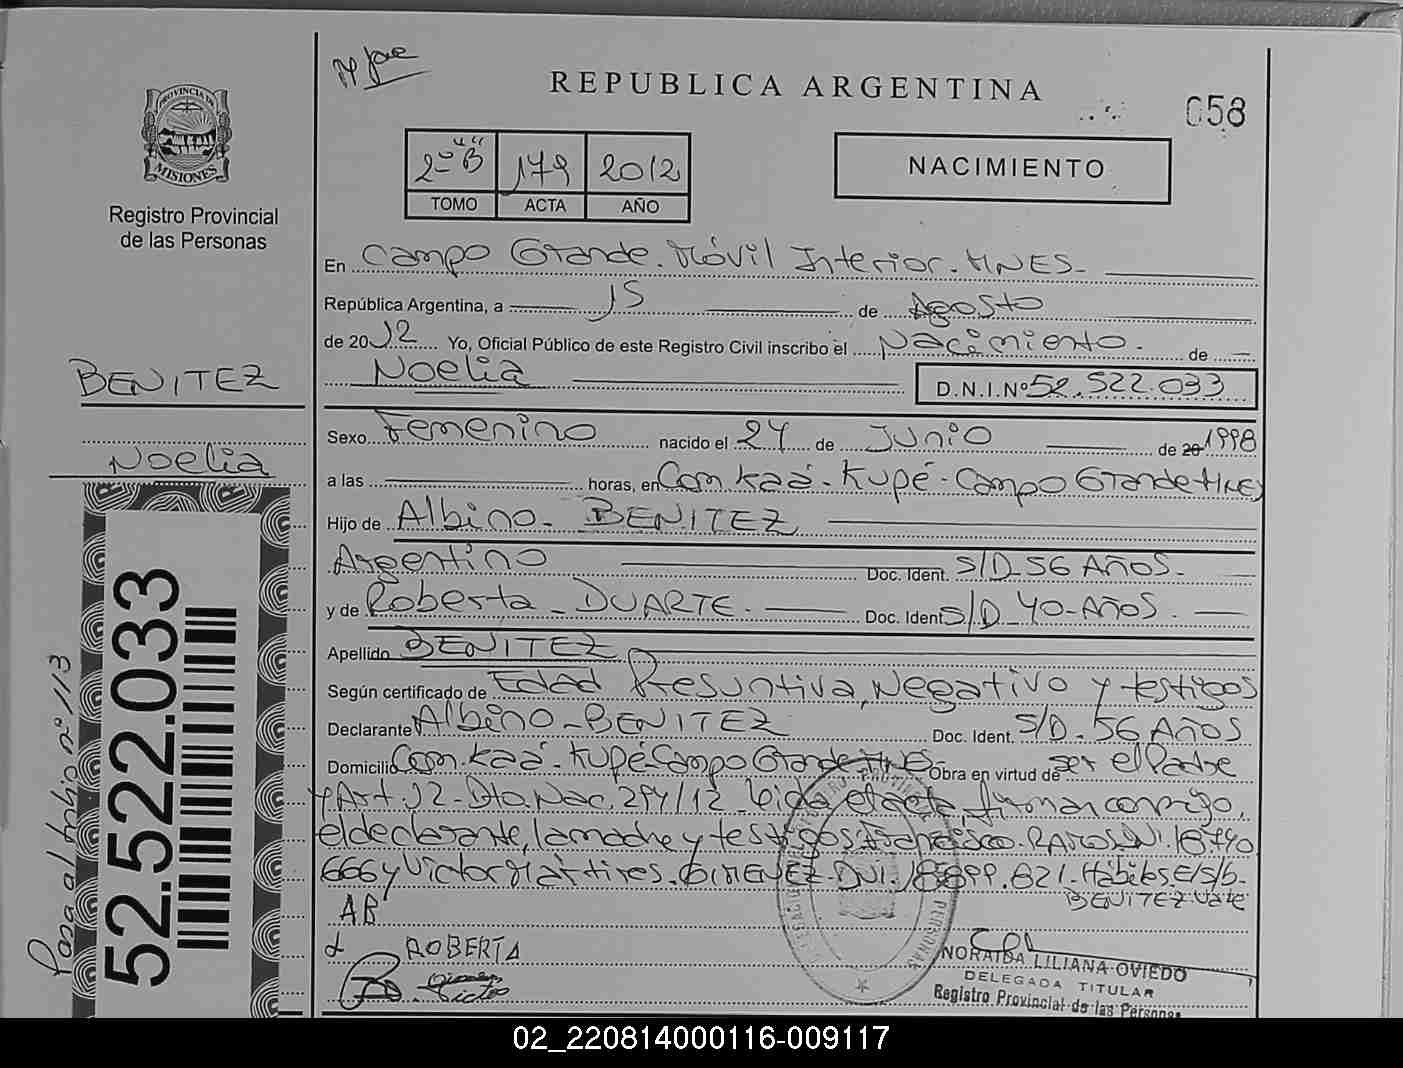 REPUBLICA ARGENTINA
058
PROVINCIA DE
MISIONES
Registro Provincial
de las Personas
2º "B" 179 2012
TOMO ACTA AÑO
NACIMIENTO
En Campo Grande. Móvil Interior. MNES.
República Argentina, a 15 de Agosto
de 2012 Yo, Oficial Público de este Registro Civil inscribo el Nacimiento. de
Noelia D.N.I.Nº 52.522.033
BENITEZ
Noelia
Sexo Femenino nacido el 24 de Junio de 20 1998
a las horas, en Com Kaá-Kupé-Campo Grande-MNES
Hijo de Albino- BENITEZ
Argentino Doc. Ident. S/D-56 Años.
y de Roberta-DUARTE. Doc. Ident. S/D 40-Años.
Apellido BENITEZ
Según certificado de Edad Presuntiva, Negativo y testigos
Declarante Albino-BENITEZ Doc. Ident. S/D-56 Años
Domicilio Com. Kaá-Kupé-Campo Grande-MNES- Obra en virtud de ser el Padre
y Art. 12-Dto. Nac. 294/12 Leida el acta, firman conmigo,
el declarante, la madre y testigos Francisco. RAMOS DNI. 18740
666 y Victor Martires. GIMENEZ-DNI. 18699.621-Hábiles. E/S/b-
BENITEZ Vale
AB
ROBERTA
NORAIDA LILIANA OVIEDO
DELEGADA TITULAR
Registro Provincial de las Personas
52.522.033
Pasa al folio nº 113
02_220814000116-009117